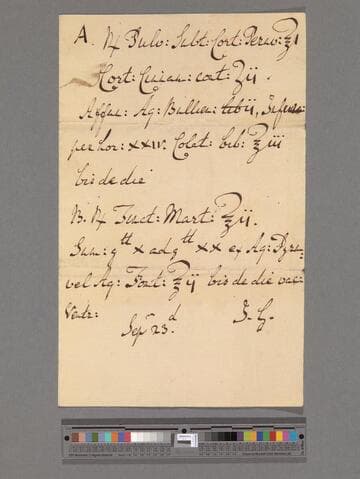 A. ℞ Pulv: Subt: Cort: Peruv: ℥i
Cort: Cusian: cont: ʒij
Affus: Aq: Bullien: lbij, Infus:
per hor: XXIV. Colat: bib: ℥iii
bis de die
B. ℞ Tinct: Mart: ℥ij.
Sum: gtt X ad gtt XX ex Aq: Pyrm
vel Aq: Font: ℥ij bis de die vac:
Ventr:
Sepr 23.d J. G.